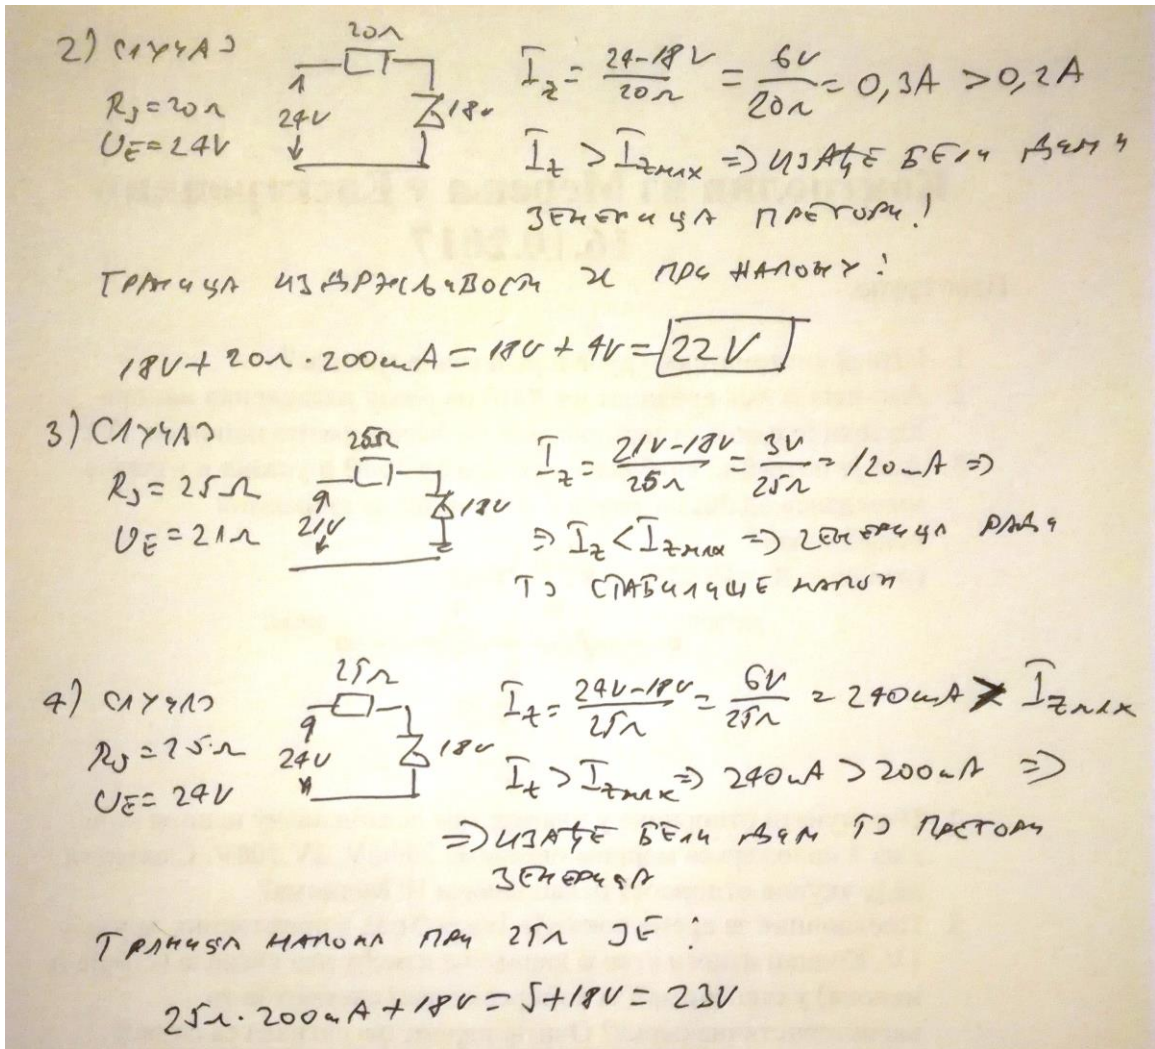 2) СЛУЧАЈ
20Ω
Rⱼ = 20Ω
U_E = 24V
24V
18V
I_z = (24-18V)/20Ω = 6V/20Ω = 0,3A > 0,2A
I_z > I_zmax => ИЗАЂЕ БЕЛИ ДИМ И
ЗЕНЕРИЦА ПРЕГОРИ!
ГРАНИЦА ИЗДРЖЉИВОСТИ ЈЕ ПРИ НАПОНУ:
18V + 20Ω · 200mA = 18V + 4V = 22V
3) СЛУЧАЈ
25Ω
Rⱼ = 25Ω
U_E = 21Ω
21V
18V
I_z = (21V-18V)/25Ω = 3V/25Ω = 120mA =>
=> I_z < I_zmax => ЗЕНЕРИЦА РАДИ
ТЈ СТАБИЛИШЕ НАПОН
4) СЛУЧАЈ
25Ω
Rⱼ = 25Ω
U_E = 24V
24V
18V
I_z = (24V-18V)/25Ω = 6V/25Ω = 240mA > I_zmax
I_z > I_zmax => 240mA > 200mA =>
=> ИЗАЂЕ БЕЛИ ДИМ ТЈ ПРЕГОРИ
ЗЕНЕРИЦА
ГРАНИЦА НАПОНА ПРИ 25Ω ЈЕ:
25Ω · 200mA + 18V = 5 + 18V = 23V